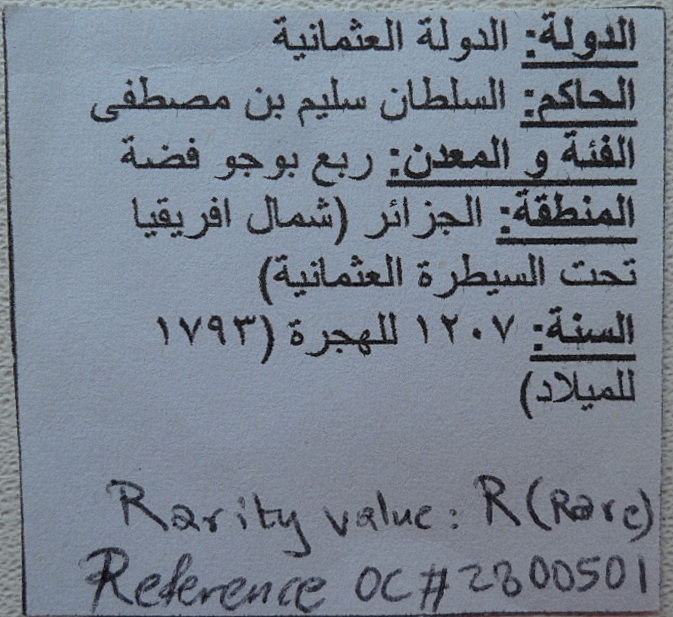 الدولة: الدولة العثمانية
الحاكم: السلطان سليم بن مصطفى
الفئة و المعدن: ربع بوجو فضة
المنطقة: الجزائر (شمال افريقيا
تحت السيطرة العثمانية)
السنة: ١٢٠٧ للهجرة (١٧٩٣
للميلاد)
Rarity value: R (Rare)
Reference OC#2800501